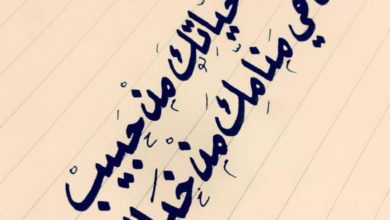 حياتك من حبيب
في منامك من